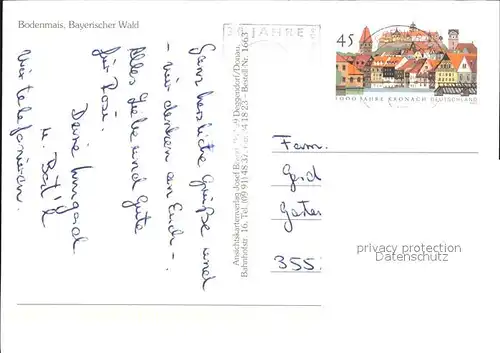 Bodenmais, Bayerischer Wald
JAHRE
45
1000 JAHRE KRONACH DEUTSCHLAND
Ganz herzliche Grüße und
- wir denken an Euch -.
Alles Liebe und Gute
für Rosi.
Deine Irmgard
u.
Wir telefonieren.
Ansichtskartenverlag Josef Deggendorf/Donau,
Bahnhofstr. 16, Tel. (09 91) 48 37, 4 18 23 - Bestell Nr. 1663
Fam.
Gerd
355
privacy protection
Datenschutz